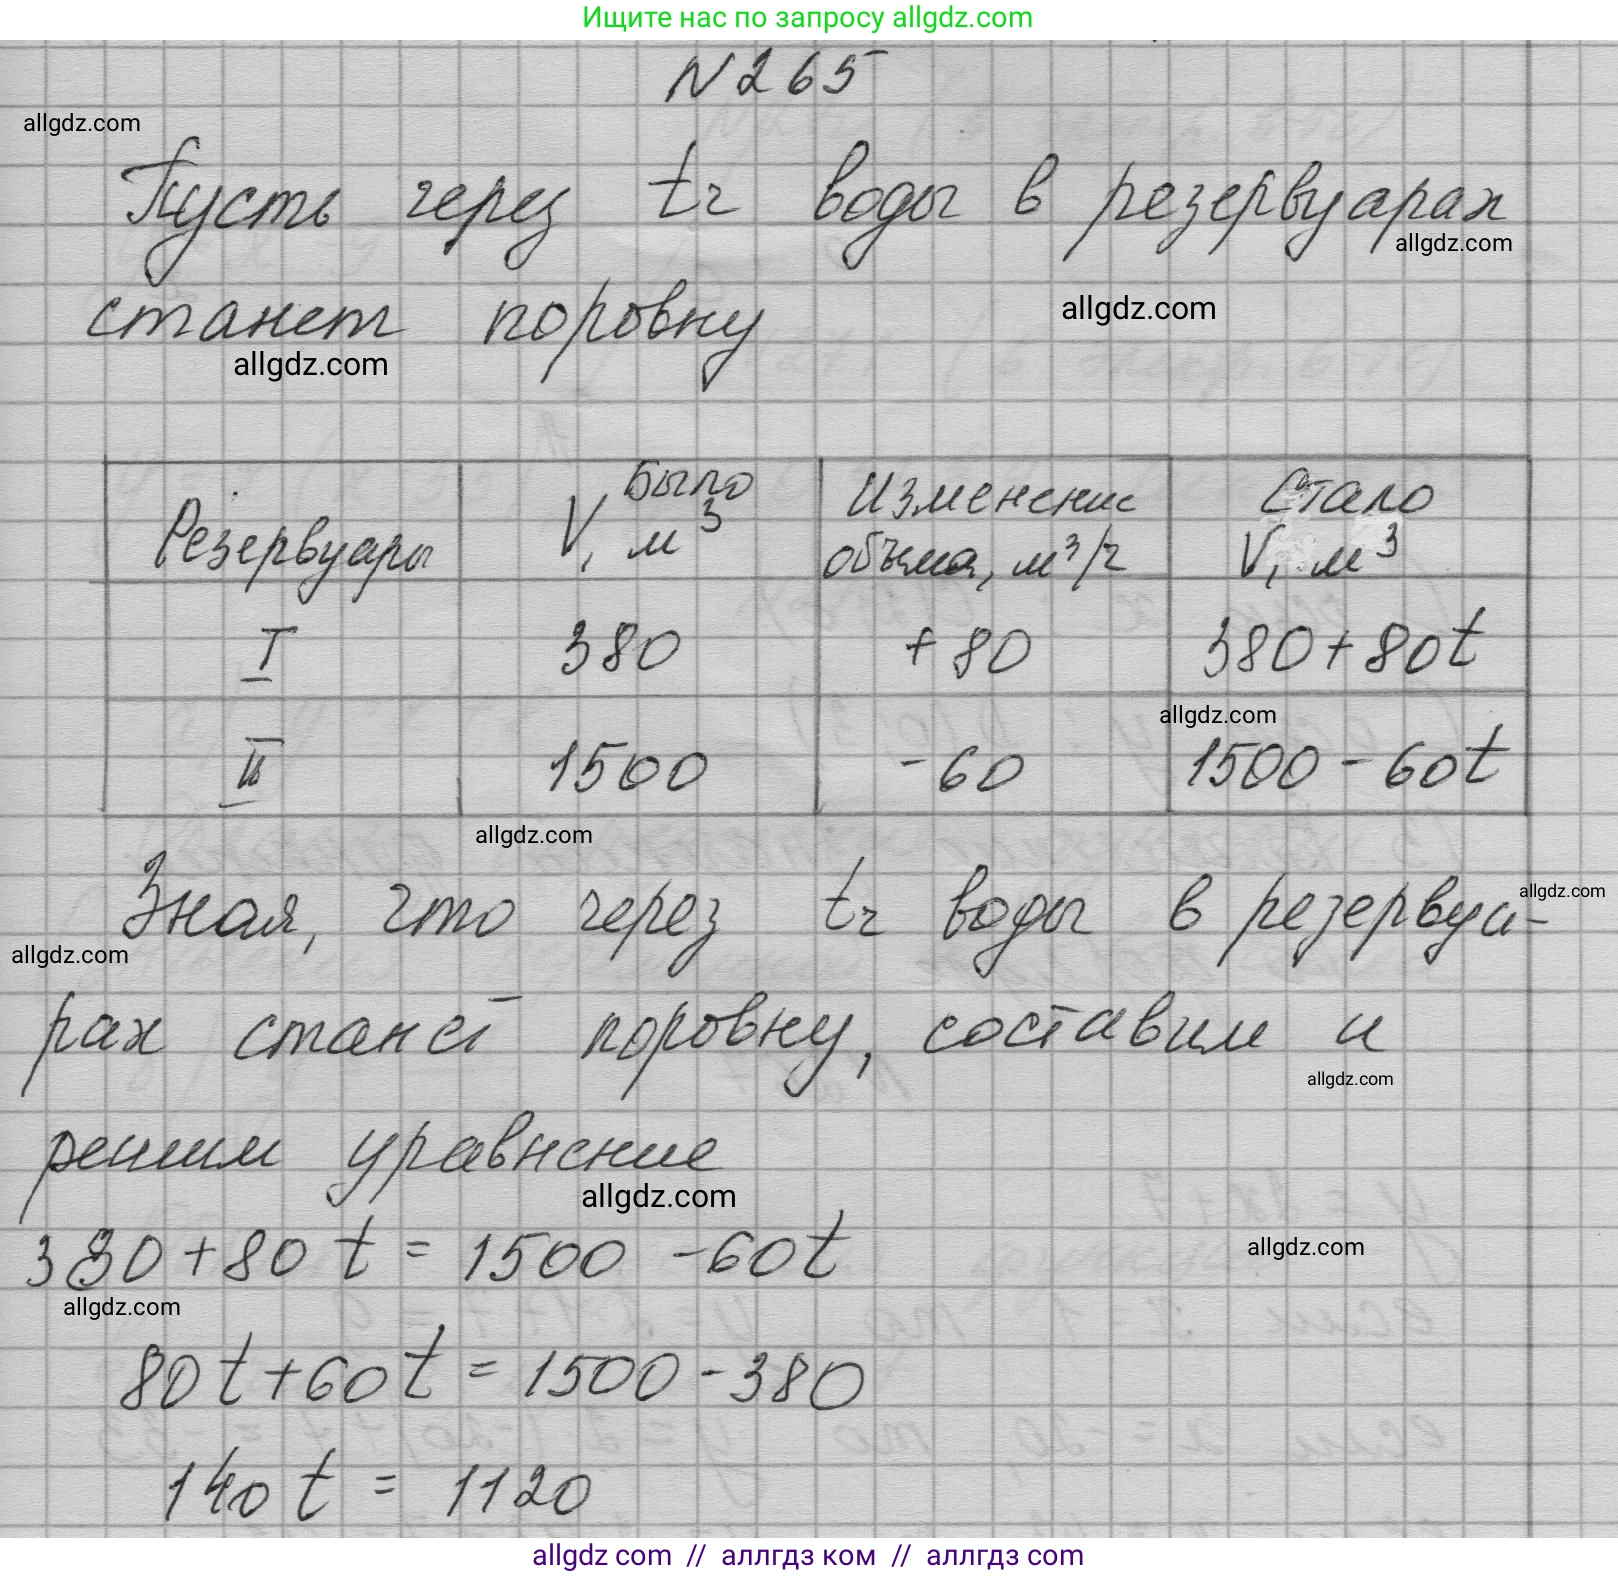 Ищите нас по запросу allgdz.com
N 265
allgdz.com
Пусть через t ч воды в резервуарах
allgdz.com
станет поровну
allgdz.com
allgdz.com
Резервуары | Было V, м³ | Изменение объема, м³/ч | Стало V, м³
I | 380 | +80 | 380+80t
allgdz.com
II | 1500 | -60 | 1500-60t
allgdz.com
Зная, что через t ч воды в резервуа-
allgdz.com
allgdz.com
рах станет поровну, составим и
allgdz.com
решим уравнение
allgdz.com
380+80t=1500-60t
allgdz.com
allgdz.com
80t+60t=1500-380
140t=1120
allgdz com // аллгдз ком // аллгдз com